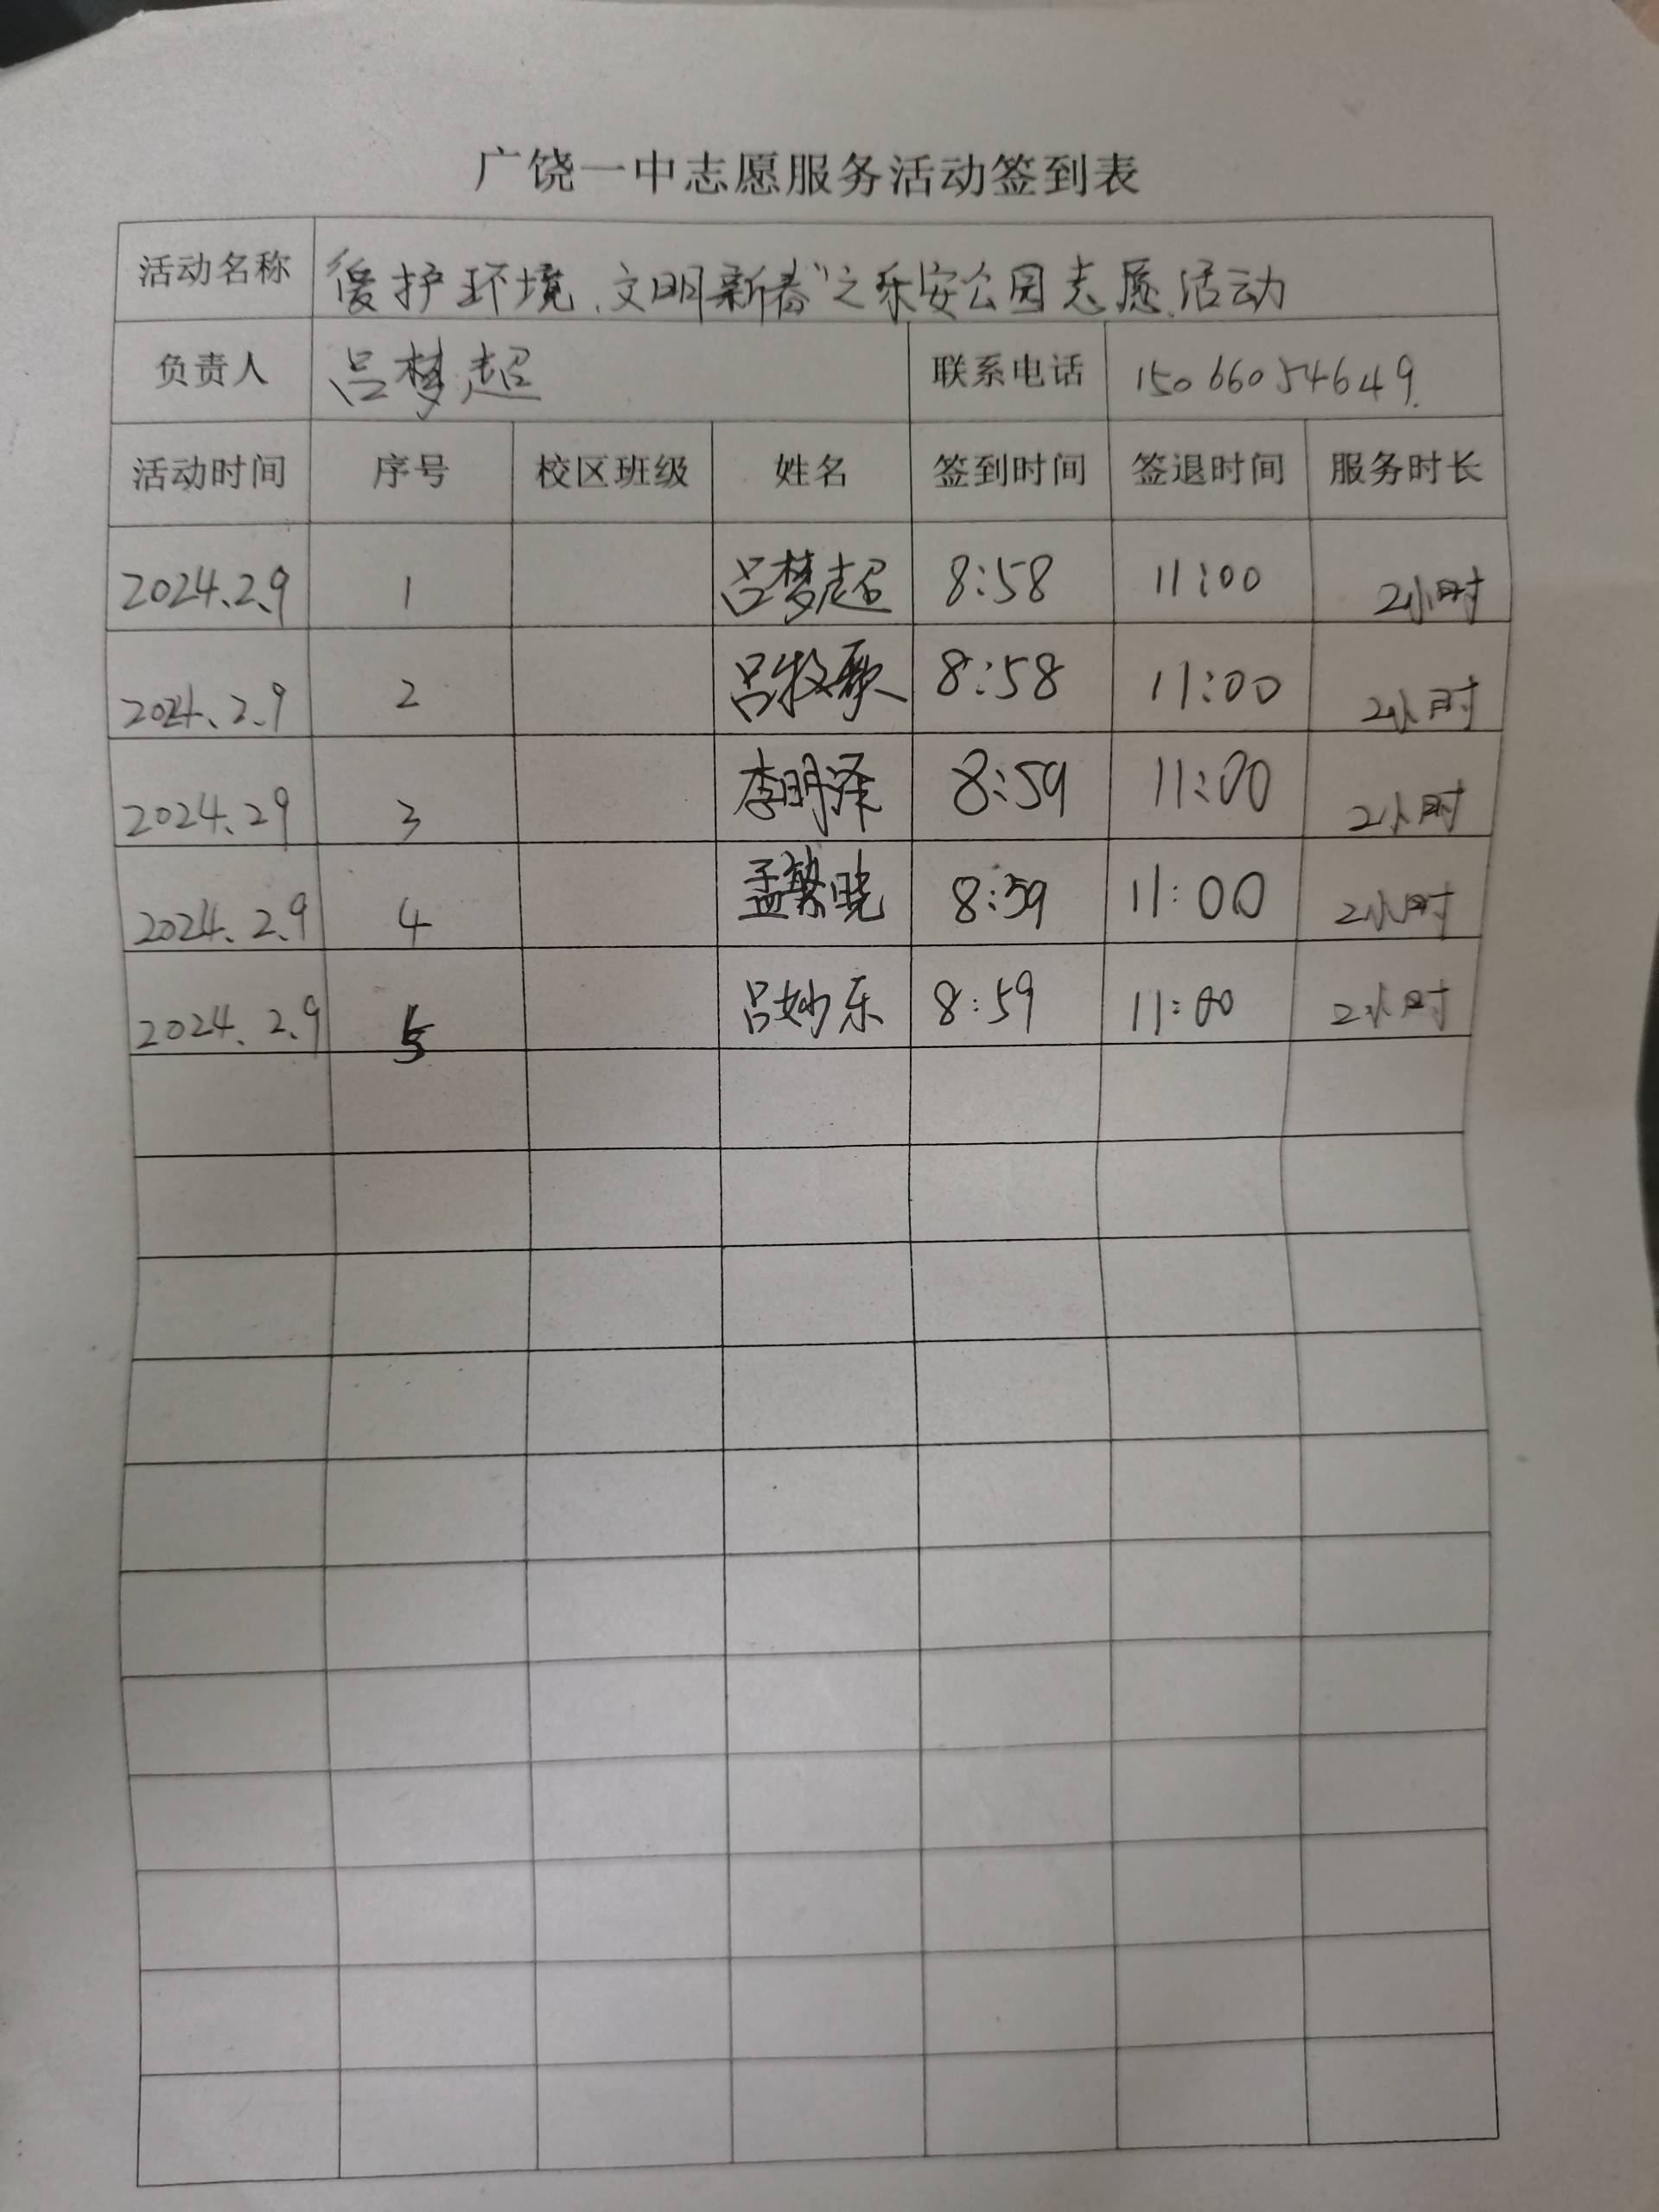 广饶一中志愿服务活动签到表
活动名称 “爱护环境、文明新春”之乐安公园志愿活动
负责人 吕梦超 联系电话 15066054649.
活动时间 序号 校区班级 姓名 签到时间 签退时间 服务时长
2024.2.9 1 吕梦超 8:58 11:00 2小时
2024.2.9 2 吕牧歌 8:58 11:00 2小时
2024.29 3 李明泽 8:59 11:00 2小时
2024.2.9 4 孟繁晓 8:59 11:00 2小时
2024.2.9 5 吕妙乐 8:59 11:00 2小时